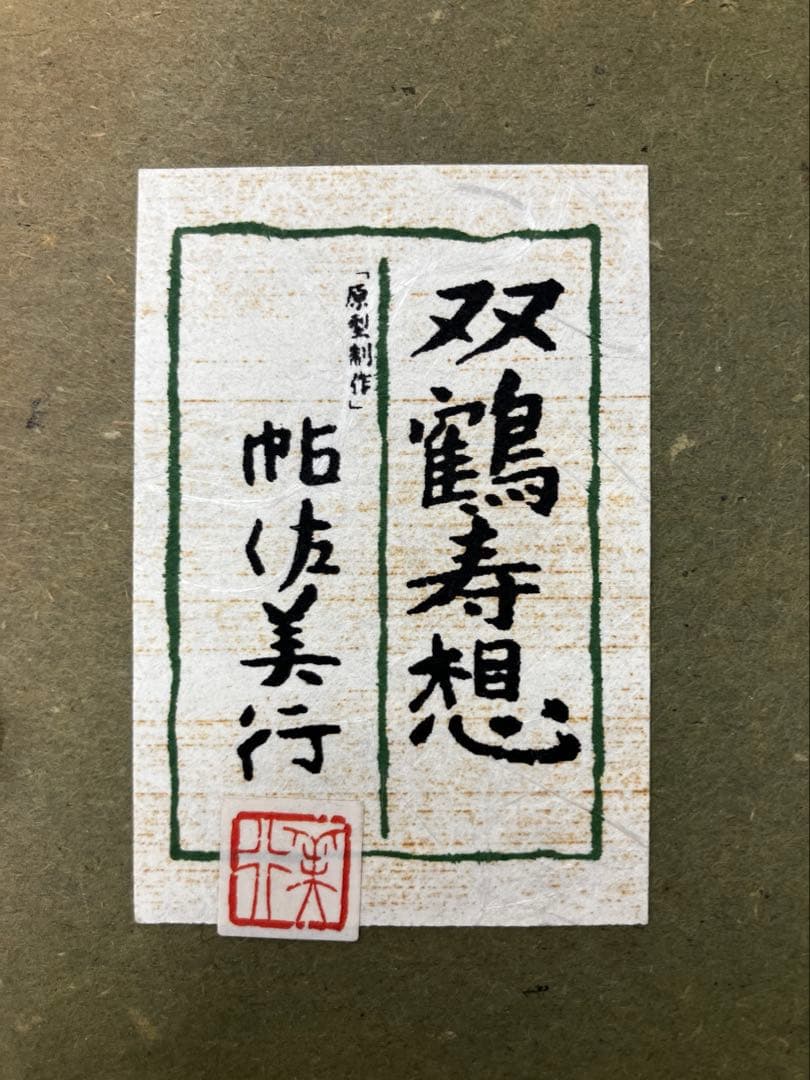 双鶴寿想
「原型制作」
帖佐美行
美行